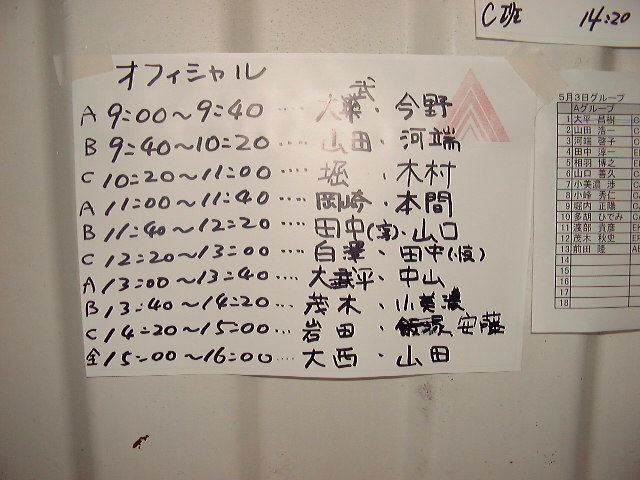 C班 14:20
オフィシャル
A 9:00〜9:40 .... 大武・今野
B 9:40〜10:20 .... 山田・河端
C 10:20〜11:00 .... 堀・木村
A 11:00〜11:40 .... 岡崎・本間
B 11:40〜12:20 .... 田中(淳)・山口
C 12:20〜13:00 .... 白澤・田中(慎)
A 13:00〜13:40 .... 大平・中山
B 13:40〜14:20 .... 茂木・小美濃
C 14:20〜15:00 .... 岩田・飯塚、安藤
全 15:00〜16:00 .... 大西・山田
5月3日グループ
Aグループ
1 大平 昌樹
2 山田 浩一
3 河端 啓子
4 田中 淳一
5 相羽 博之
6 山口 善久
7 小美濃 渉
8 小峰 秀仁
9 堀内 正陽
10 多胡 ひでみ
11 渡部 貴彦
12 茂木 秋史
13 前田 隆
14
15
16
17
18